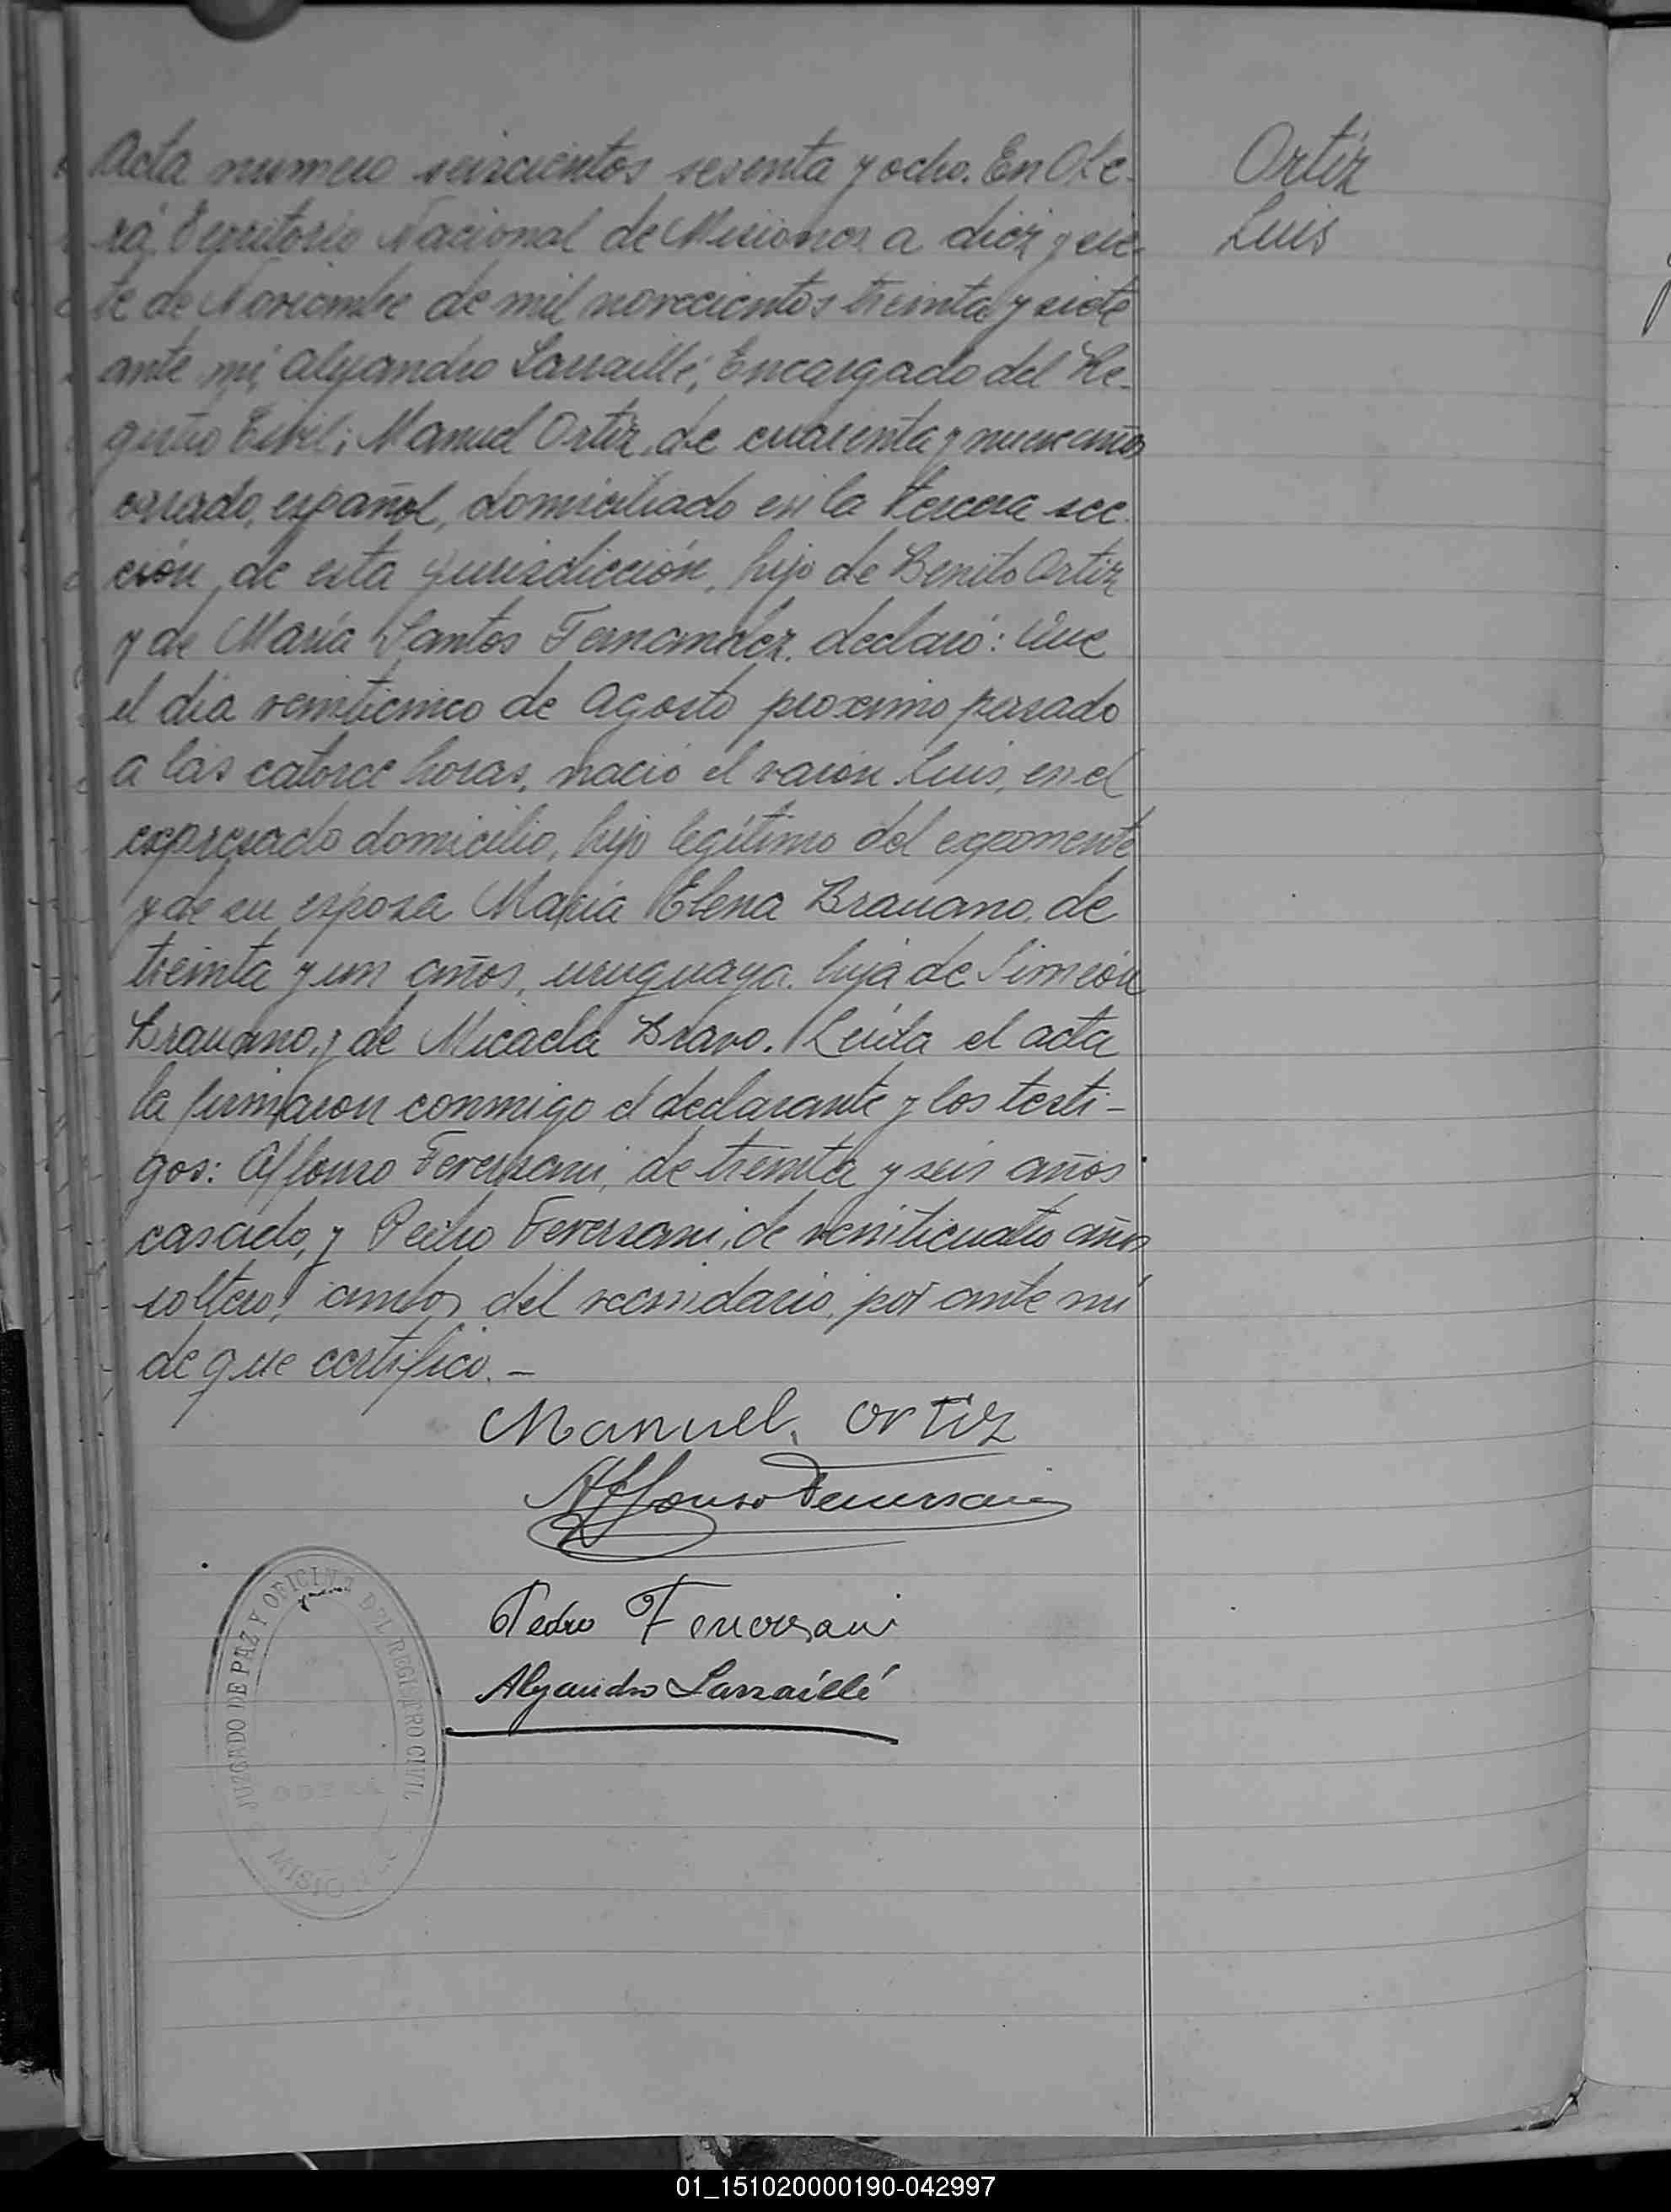 Acta numero seiscientos sesenta y ocho. En Obe-
rá, Territorio Nacional de Misiones a diez y sie-
te de Noviembre de mil novecientos treinta y siete
ante mi, Alejandro Larraillé, Encargado del Re-
gistro Civil; Manuel Ortiz, de cuarenta y nueve años
casado, español, domiciliado en la tercera sec-
ción de esta jurisdicción, hijo de Benito Ortiz
y de María Santos Fernández, declaró: Que
el día veinticinco de Agosto proximo pasado
a las catorce horas, nació el varón Luis, en el
expresado domicilio, hijo legítimo del exponente
y de su esposa María Elena Brauano, de
treinta y un años, uruguaya, hija de Simeón
Brauano, y de Micaela Bravo. Leída el acta
la firmaron conmigo el declarante y los testi-
gos: Affonso Feversani, de treinta y seis años
casado, y Pedro Feversani, de veinticuatro años
soltero, ambos del vecindario, por ante mí
de que certifico. —
Ortiz
Luis
Manuel. Ortiz
Affonso Feversani
Pedro Feversani
Alejandro Larraillé
JUZGADO DE PAZ Y OFICINA DEL REGISTRO CIVIL
OBERÁ
MISIONES
01_151020000190-042997